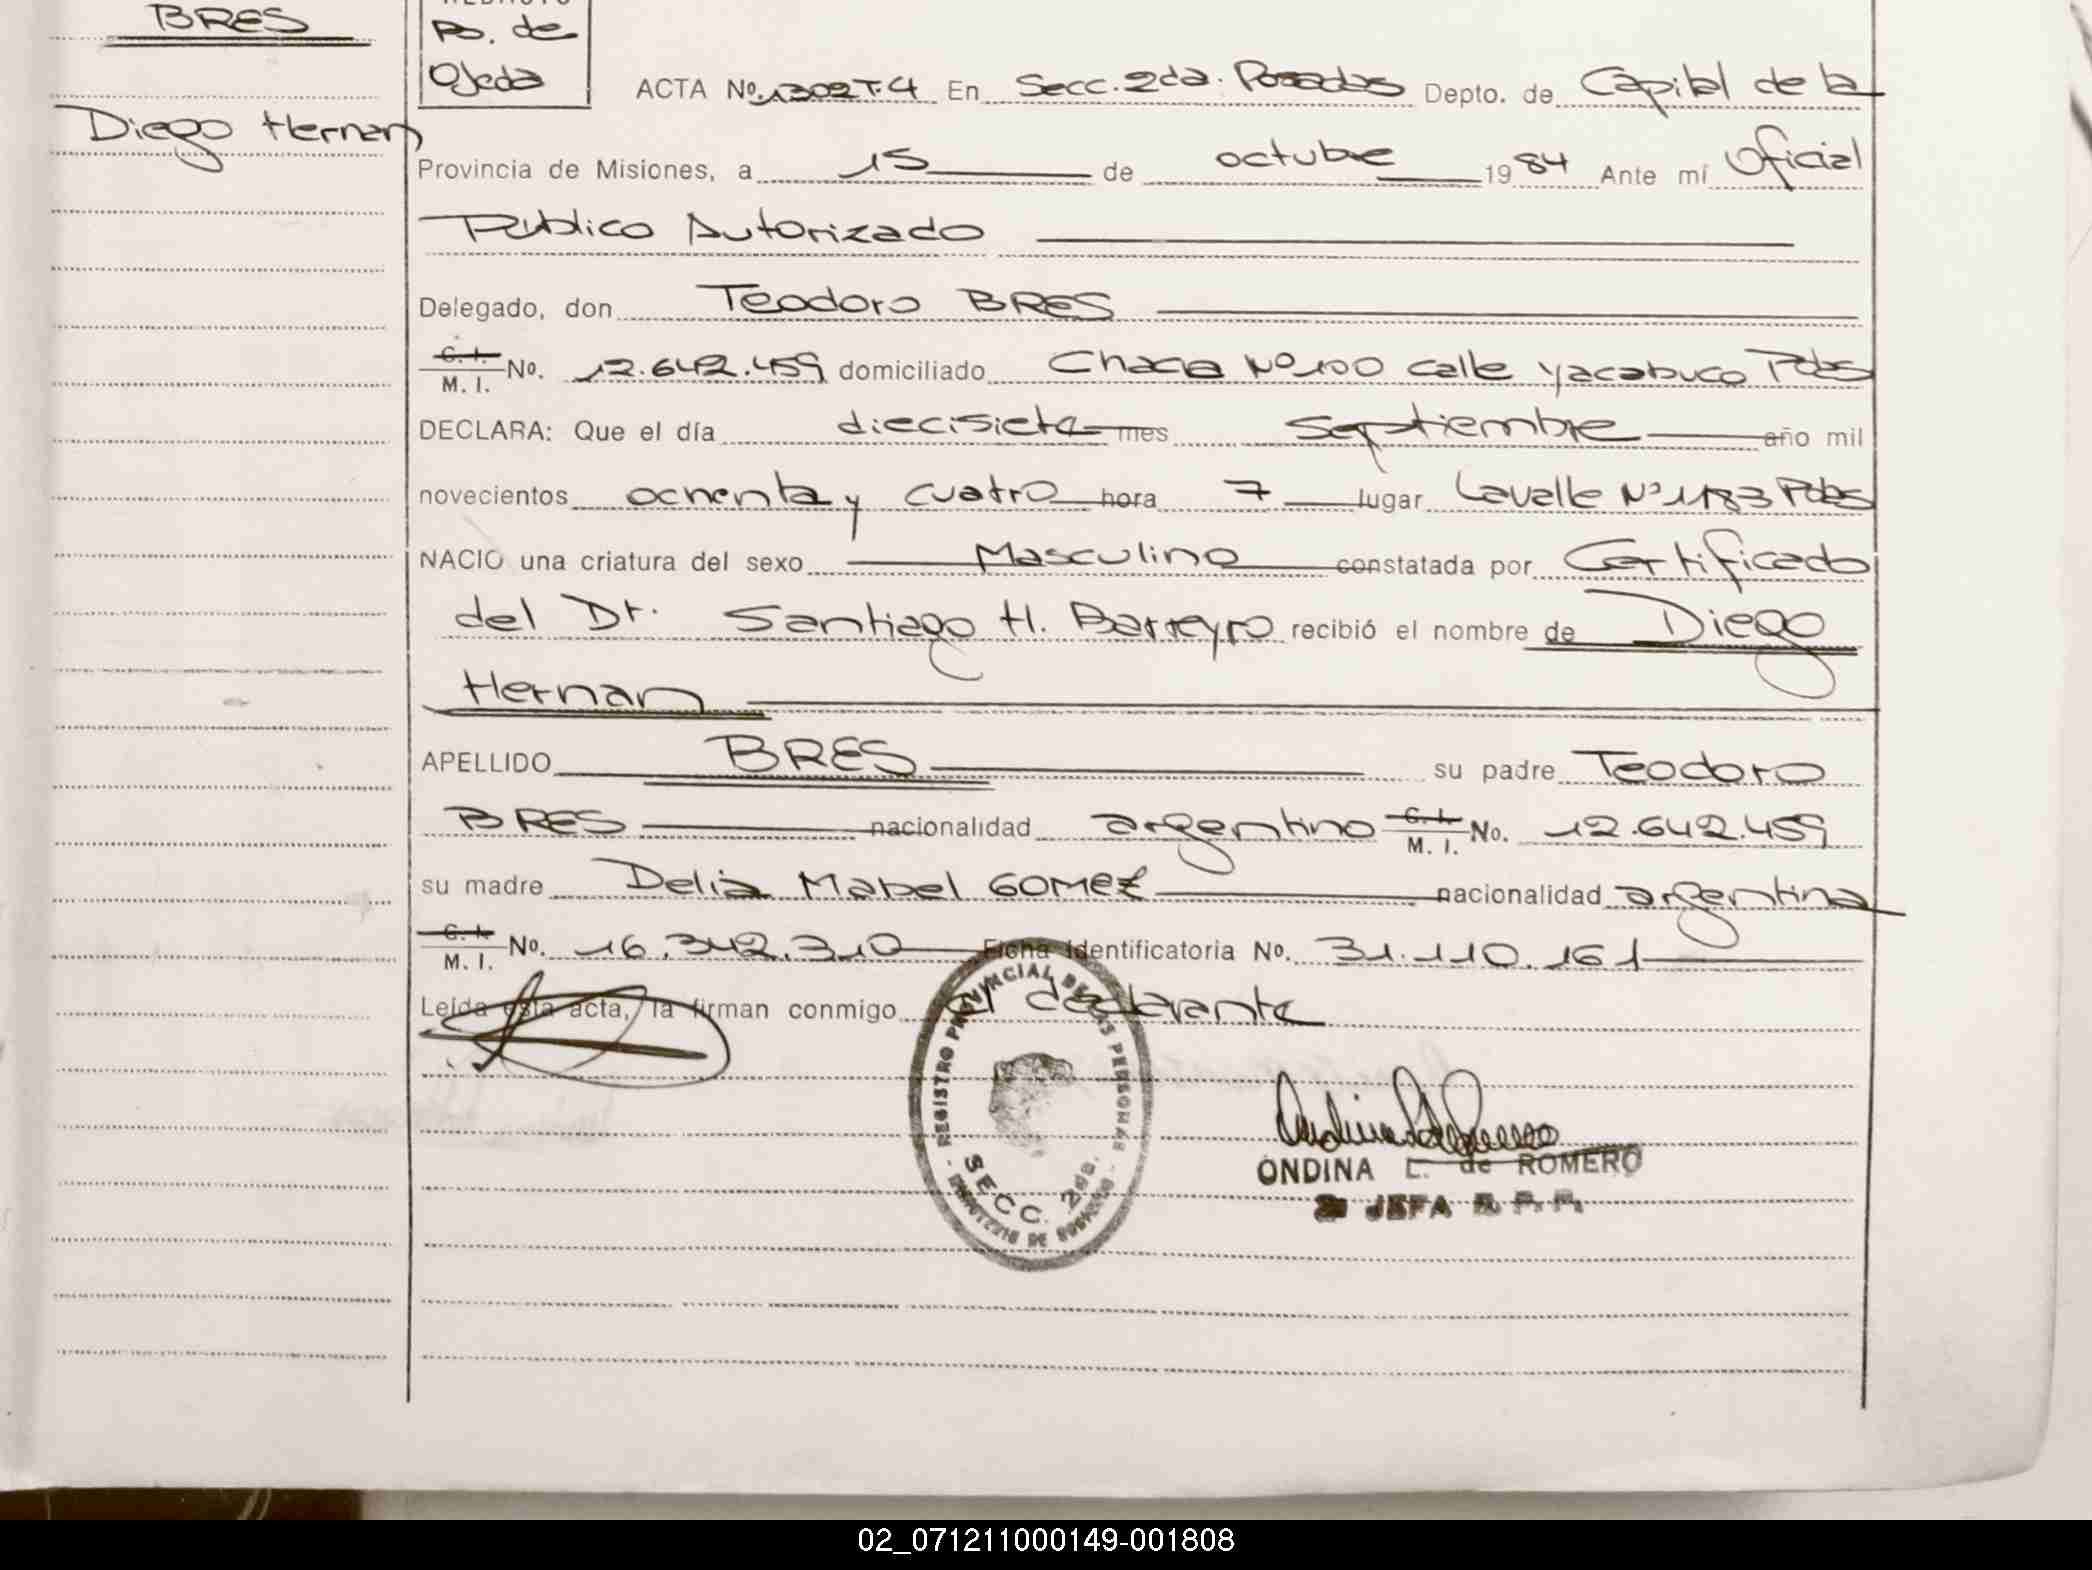 BRES
Diego Hernan
Po. de
Ojeda
ACTA No. 1302 T.4 En Secc. 2da. Posadas Depto. de Capital de la
Provincia de Misiones, a 15 de octubre 1984 Ante mí Oficial
Publico Autorizado
Delegado, don Teodoro BRES
C. I.
M. I. No. 12.642.459 domiciliado Chacra Nº 100 calle Yacabuco Pdas
DECLARA: Que el día diecisiete mes septiembre año mil
novecientos ochenta y cuatro hora 7 lugar Lavalle Nº 1183 Pdas
NACIO una criatura del sexo Masculino constatada por Certificado
del Dr. Santiago H. Barreyro recibió el nombre de Diego
Hernan
APELLIDO BRES su padre Teodoro
BRES nacionalidad argentino C. I. M. I. No. 12.642.459
su madre Delia Mabel GOMEZ nacionalidad argentina
C. I.
M. I. No. 16.342.310 Ficha Identificatoria No. 31.110.161
Leída esta acta, la firman conmigo el declarante
REGISTRO PROVINCIAL DE LAS PERSONAS
SECC. 2da.
ONDINA L. de ROMERO
JEFA
02_071211000149-001808